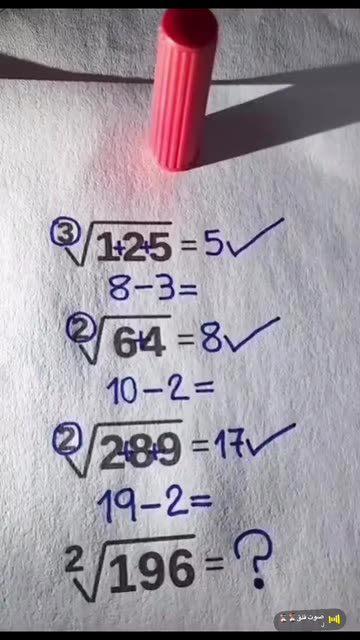 ³√1+2+5 = 5✓
8-3=
²√6+4 = 8✓
10-2=
²√2+8+9 = 17✓
19-2=
²√196 = ?
صوت فنق